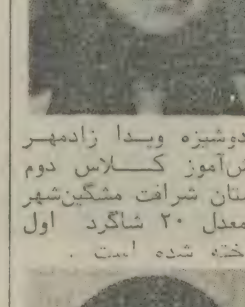 دوشیزه ویدا زادمهر
ش‌آموز کلاس دوم
ستان شرافت مشگین‌شهر
معدل ۲۰ شاگرد اول
خته شده است .